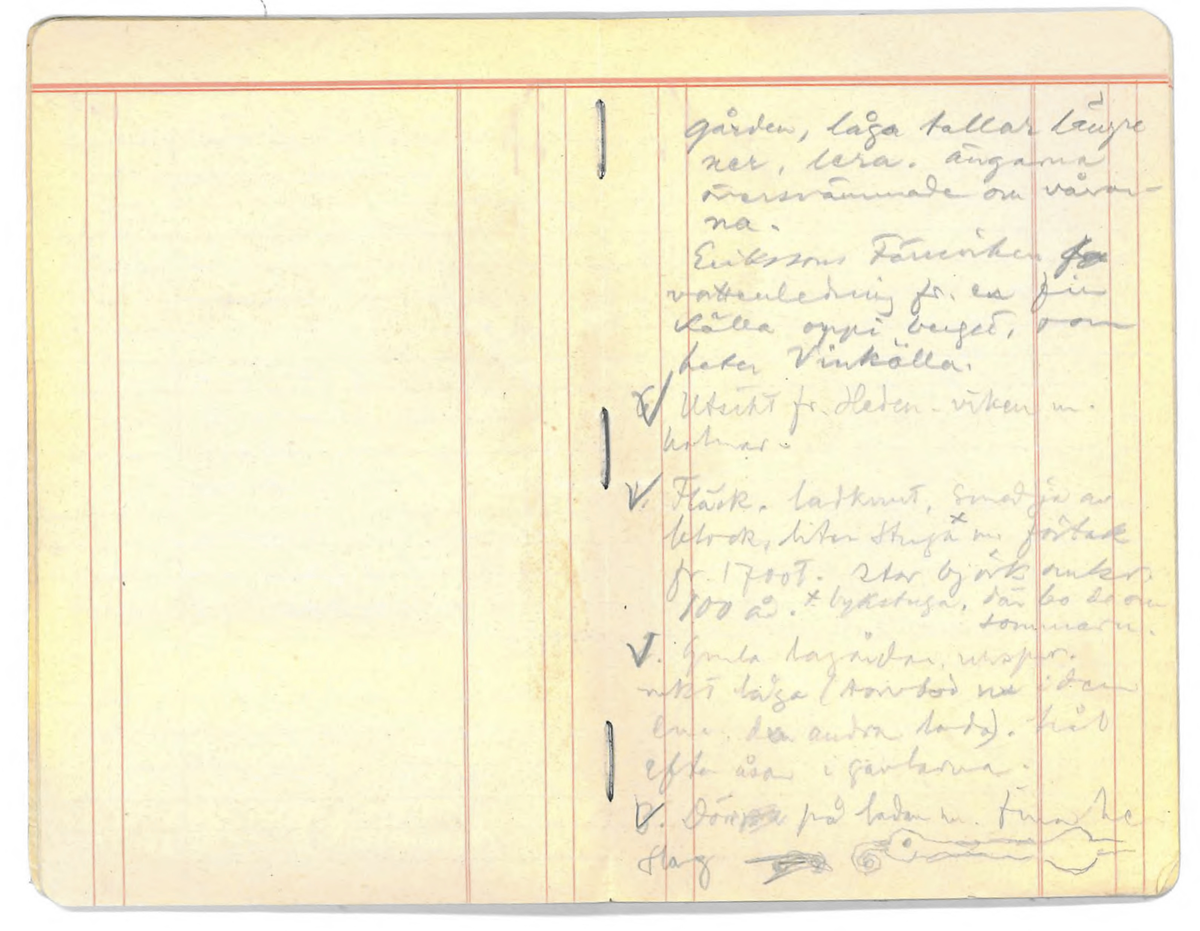 gården, låga tallar längre
ner, lera. ängarna
översvämmade om vårar-
na.
Erikssons Färsviken
vattenledning fr. en fin
källa oppi berget, som
heter Vinkälla.
Utsikt fr. Heden - viken m.
holmar.
Fläck. ladknut, smedja av
block, liten stuga x m. förtak
fr. 1700t. stor björk omkr.
100 år. x bykstuga, där bo de om
sommarn.
Gamla lagårdar, urspr.
nkt låga (torvbod nu i den
ena, den andra lada). hål
efter åsar i gavlarna.
Dörrar på ladan m. fina be
slag